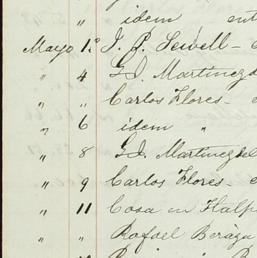 " idem ent
Mayo 1º J. P. Sewell - e
" 4 G.I. Martinez de
" " Carlos Flores - e
" 6 idem "
" 8 G.I. Martinez del
" 9 Carlos Flores - e
" 11 Casa en Halp
" " Rafael Beraza